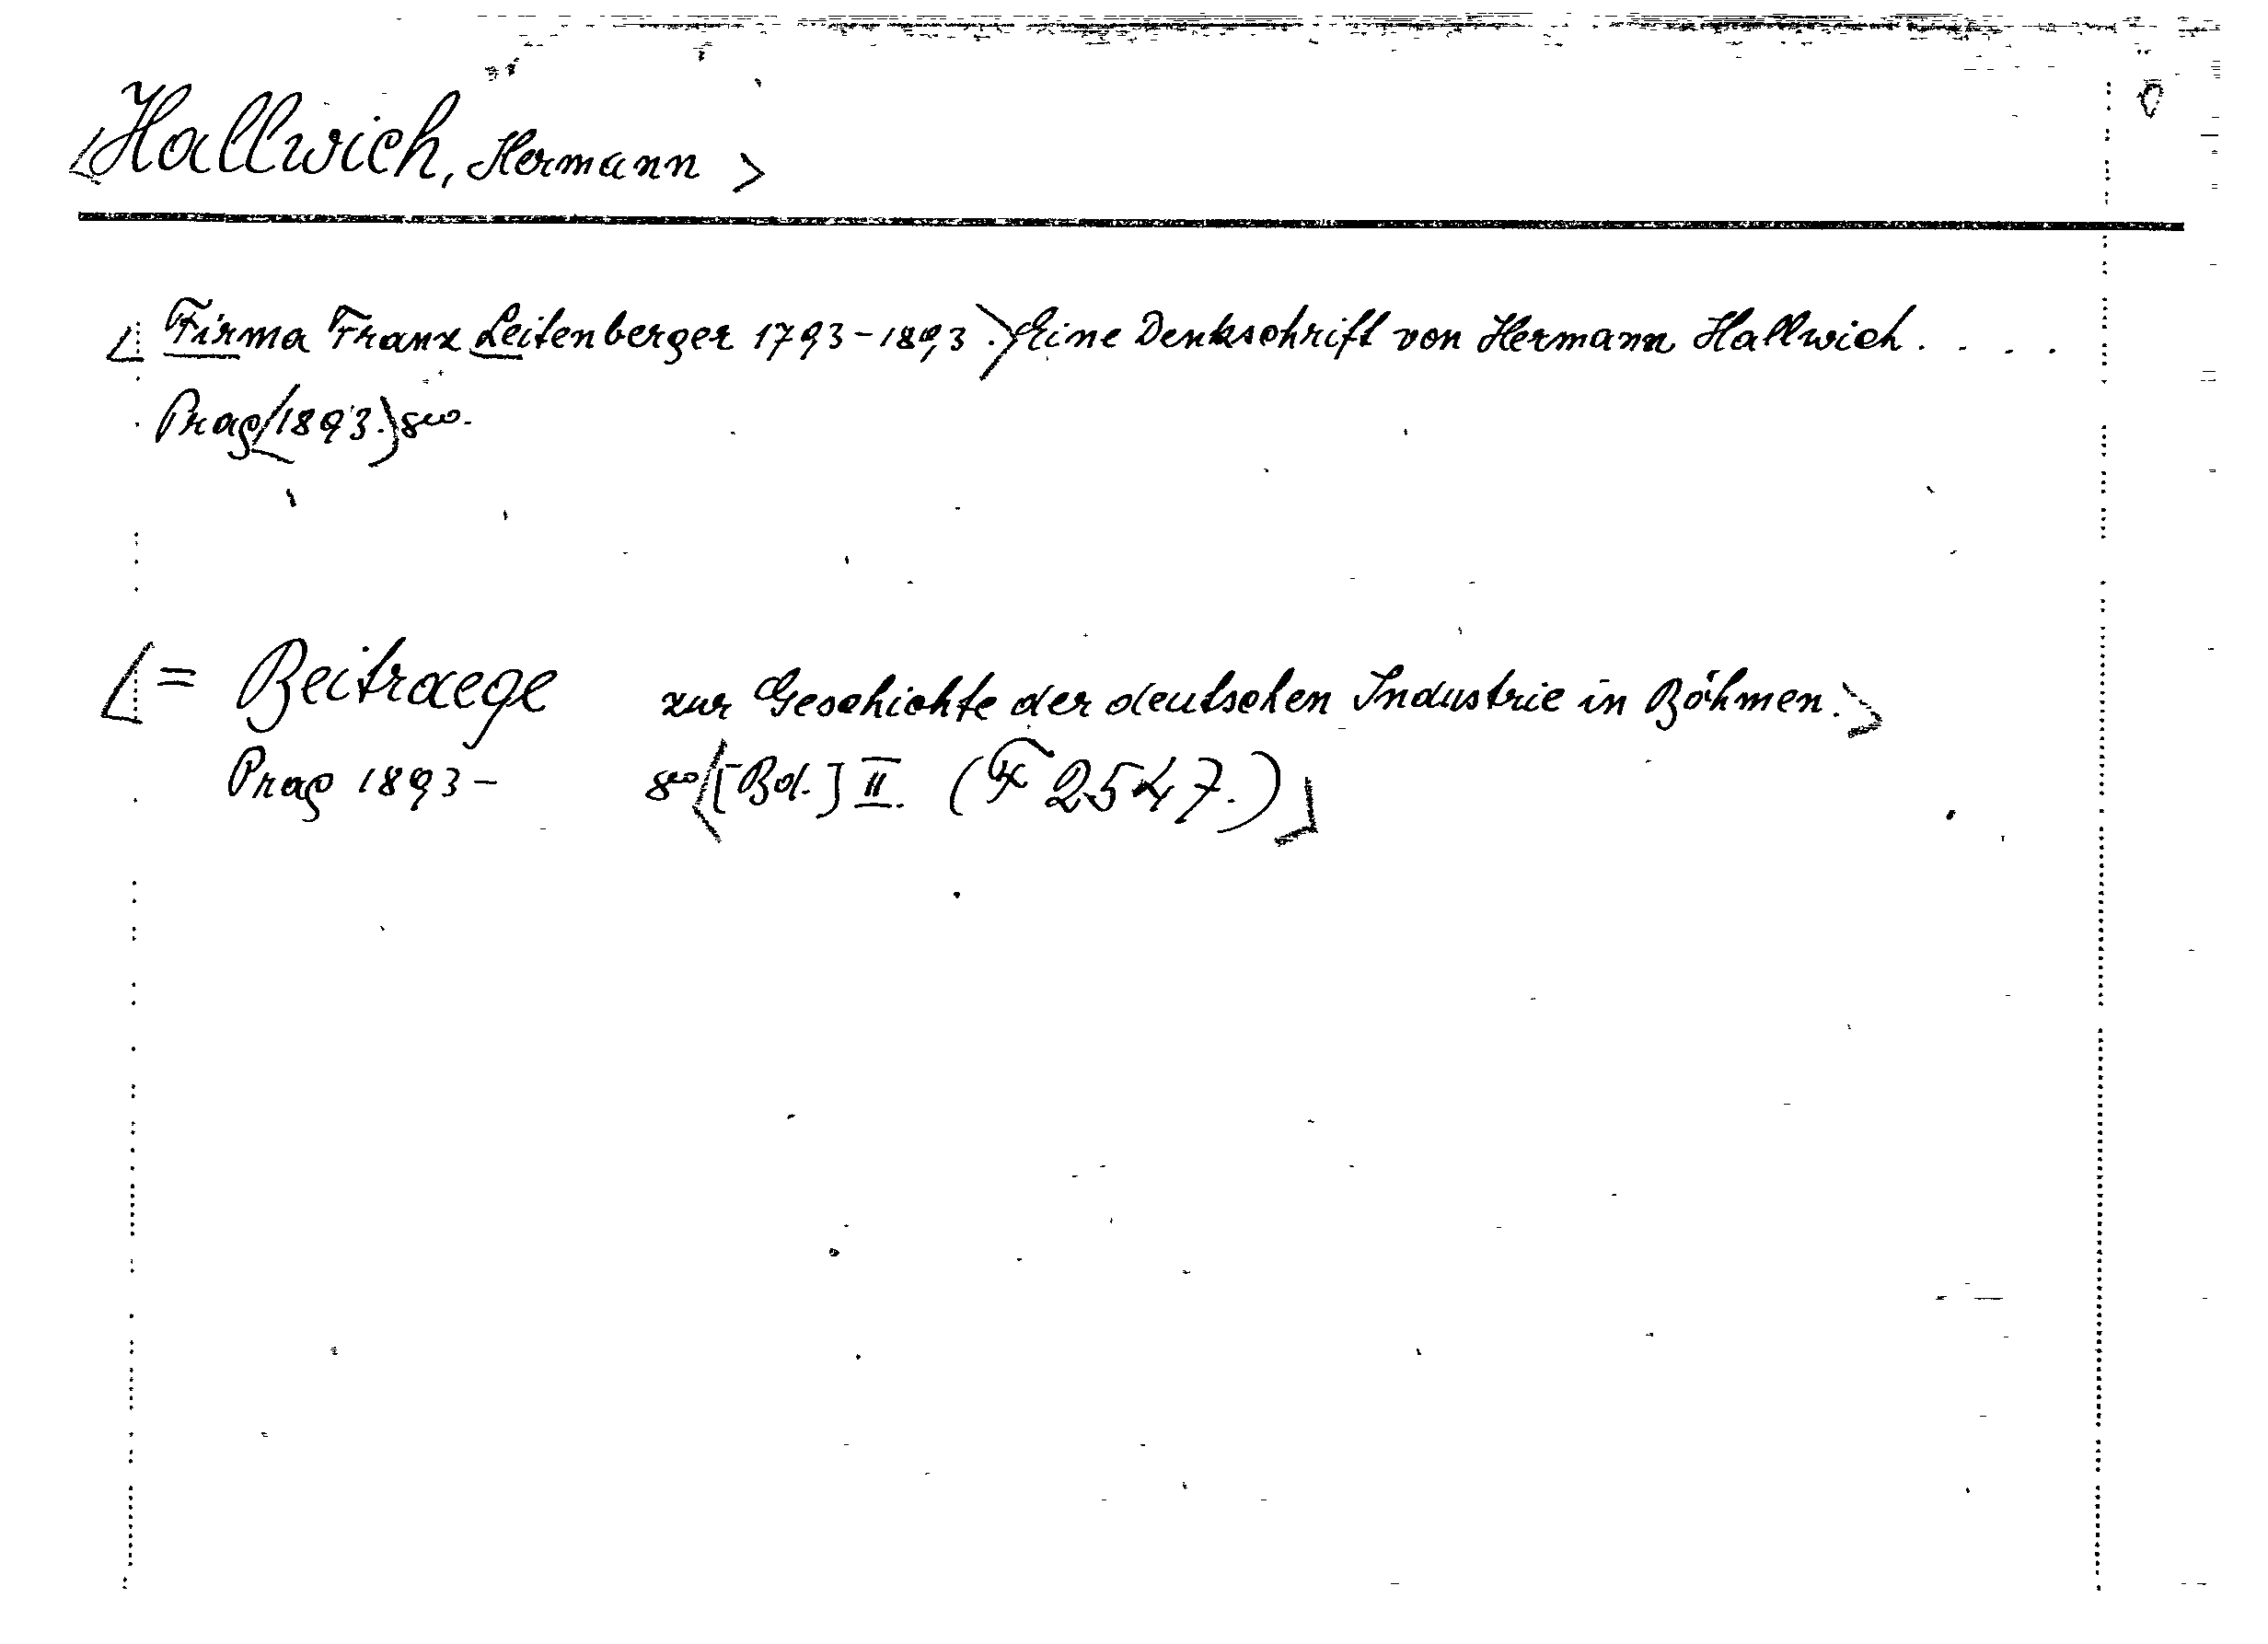 <Hallwich, Hermann>
<Firma Franz Leitenberger 1793-1893.> Eine Denkschrift von Hermann Hallwich. . . .
Prag <1893.> 8vo.
<= Beitraege zur Geschichte der deutschen Industrie in Böhmen.>
Prag 1893- 8vo <[Bd.] II. (F 2547.)>